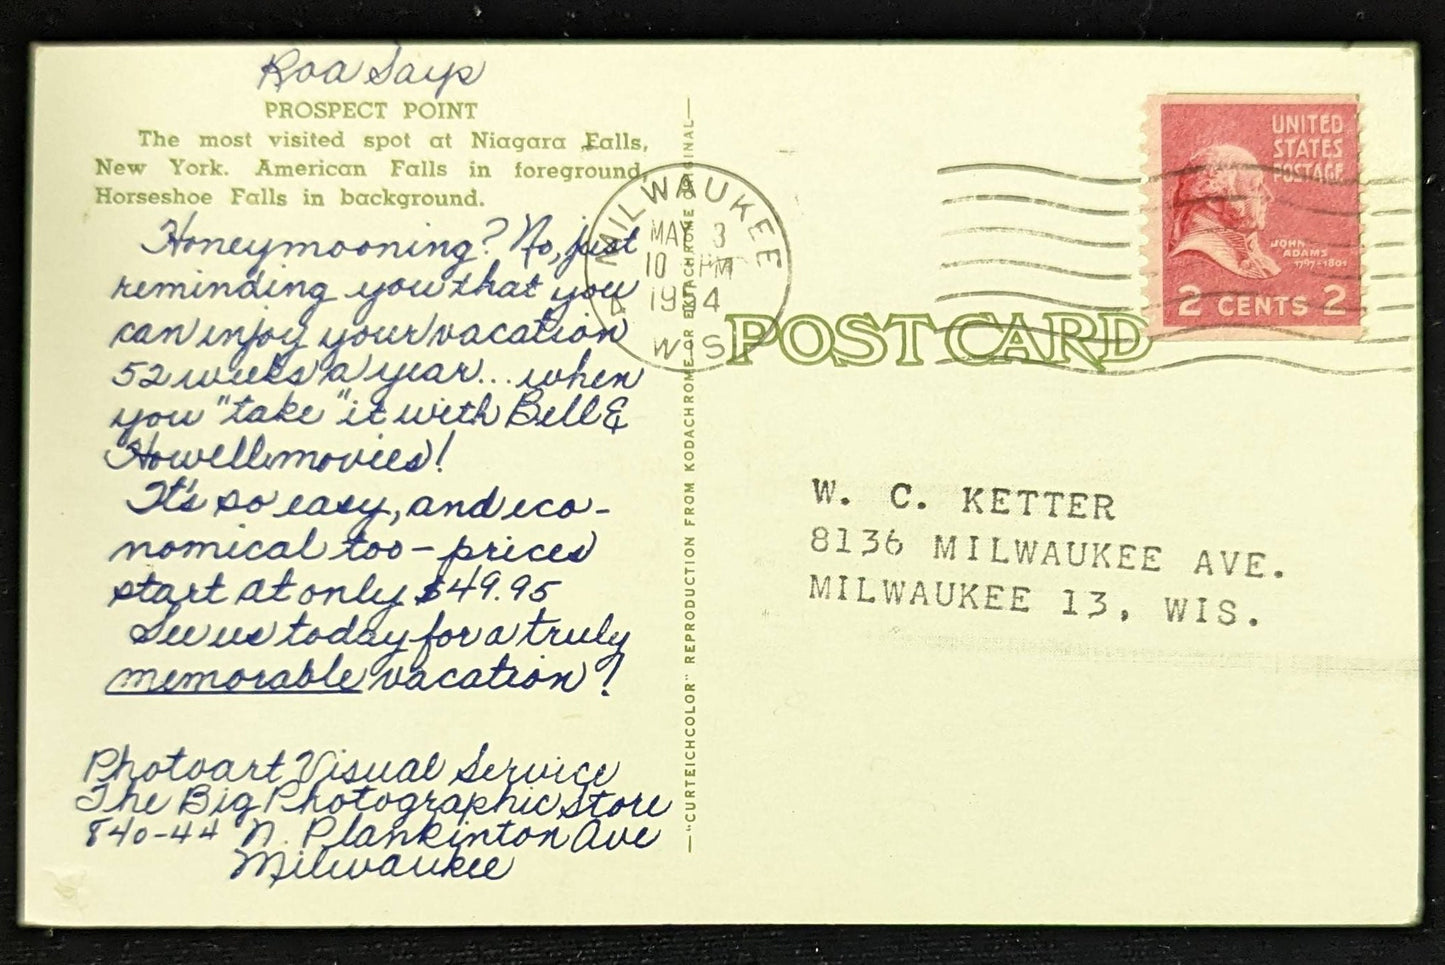 Roa Says
PROSPECT POINT
The most visited spot at Niagara Falls,
New York. American Falls in foreground,
Horseshoe Falls in background.
Honeymooning? No, just
reminding you that you
can enjoy your vacation
52 weeks a year... when
you "take" it with Bell &
Howell movies!
It's so easy, and eco-
nomical too - prices
start at only $49.95
See us today for a truly
memorable vacation!
Photoart Visual Service
The Big Photographic Store
840-44 N. Plankinton Ave
Milwaukee
—"CURTEICHCOLOR" REPRODUCTION FROM KODACHROME OR EKTACHROME ORIGINAL—
MILWAUKEE
MAY 3
10 PM
1954
WIS
POST CARD
UNITED
STATES
POSTAGE
JOHN
ADAMS
1797-1801
2 CENTS 2
W. C. KETTER
8136 MILWAUKEE AVE.
MILWAUKEE 13, WIS.